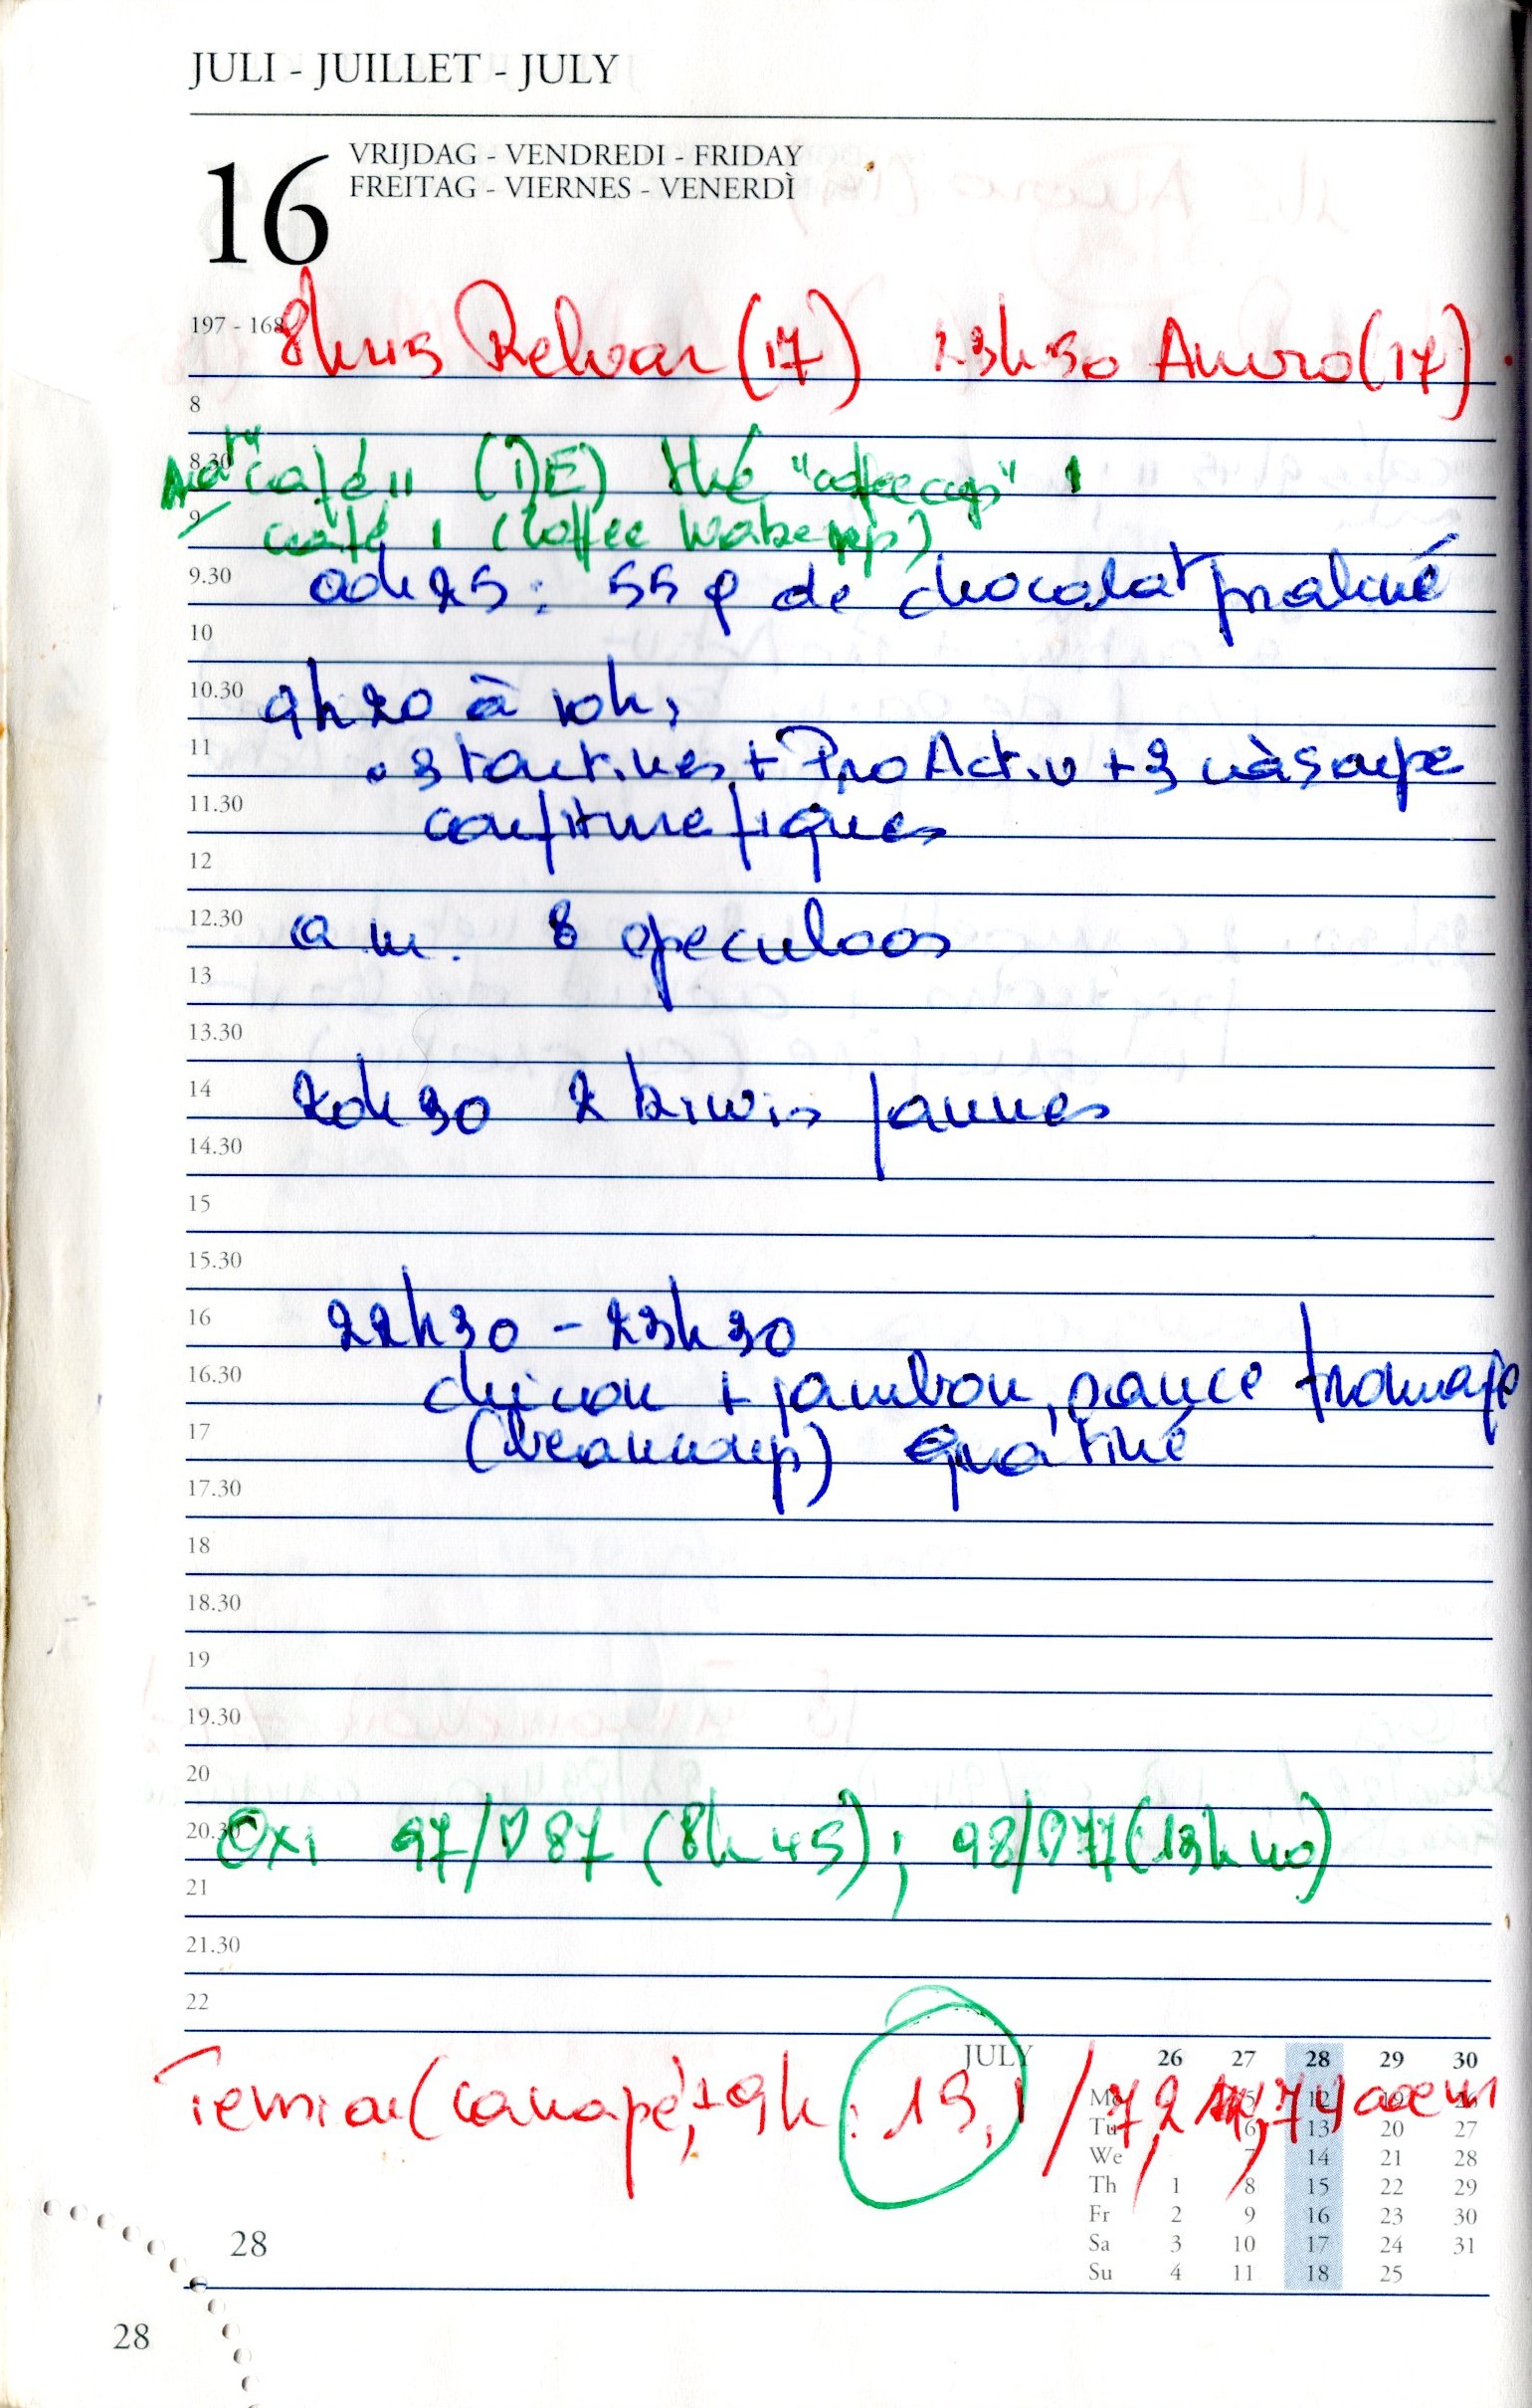 JULI - JUILLET - JULY
16
VRIJDAG - VENDREDI - FRIDAY
FREITAG - VIERNES - VENERDÌ
197 - 168
8h15 Relvar (17) 23h30 Amiro (17)
8
8.30
café 11 (DE) thé "coffeecups" 1
9
café 1 (Coffee Wake up)
9.30
0h25 : 55 g de chocolat praliné
10
10.30
9h20 à 10h,
11
3 tartines + ProActiv + 3 c à soupe
11.30
confiture figues
12
12.30
a m. 8 speculoos
13
13.30
14
20h30 2 kiwis jaunes
14.30
15
15.30
16
22h30 - 23h30
16.30
chicon + jambon, sauce fromage
17
(beaucoup) gratiné
17.30
18
18.30
19
19.30
20
20.30
Oxi 97/♡87 (8h45) ; 98/♡77 (13h40)
21
21.30
22
Tension (canapé), ±9h : 13,1 / 7,2 74
JULY 26 27 28 29 30
Mo 5 12 19 26
Tu 6 13 20 27
We 7 14 21 28
Th 1 8 15 22 29
Fr 2 9 16 23 30
Sa 3 10 17 24 31
Su 4 11 18 25
28
28